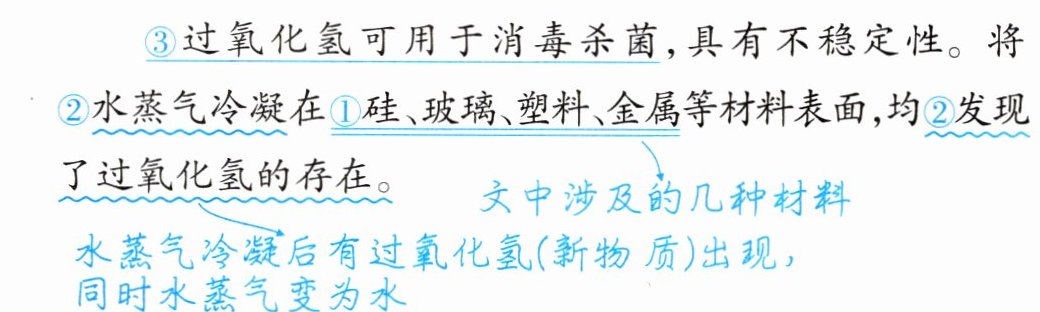 ③过氧化氢可用于消毒杀菌,具有不稳定性。将
②水蒸气冷凝在①硅、玻璃、塑料、金属等材料表面,均②发现
了过氧化氢的存在。
文中涉及的几种材料
水蒸气冷凝后有过氧化氢(新物质)出现,
同时水蒸气变为水